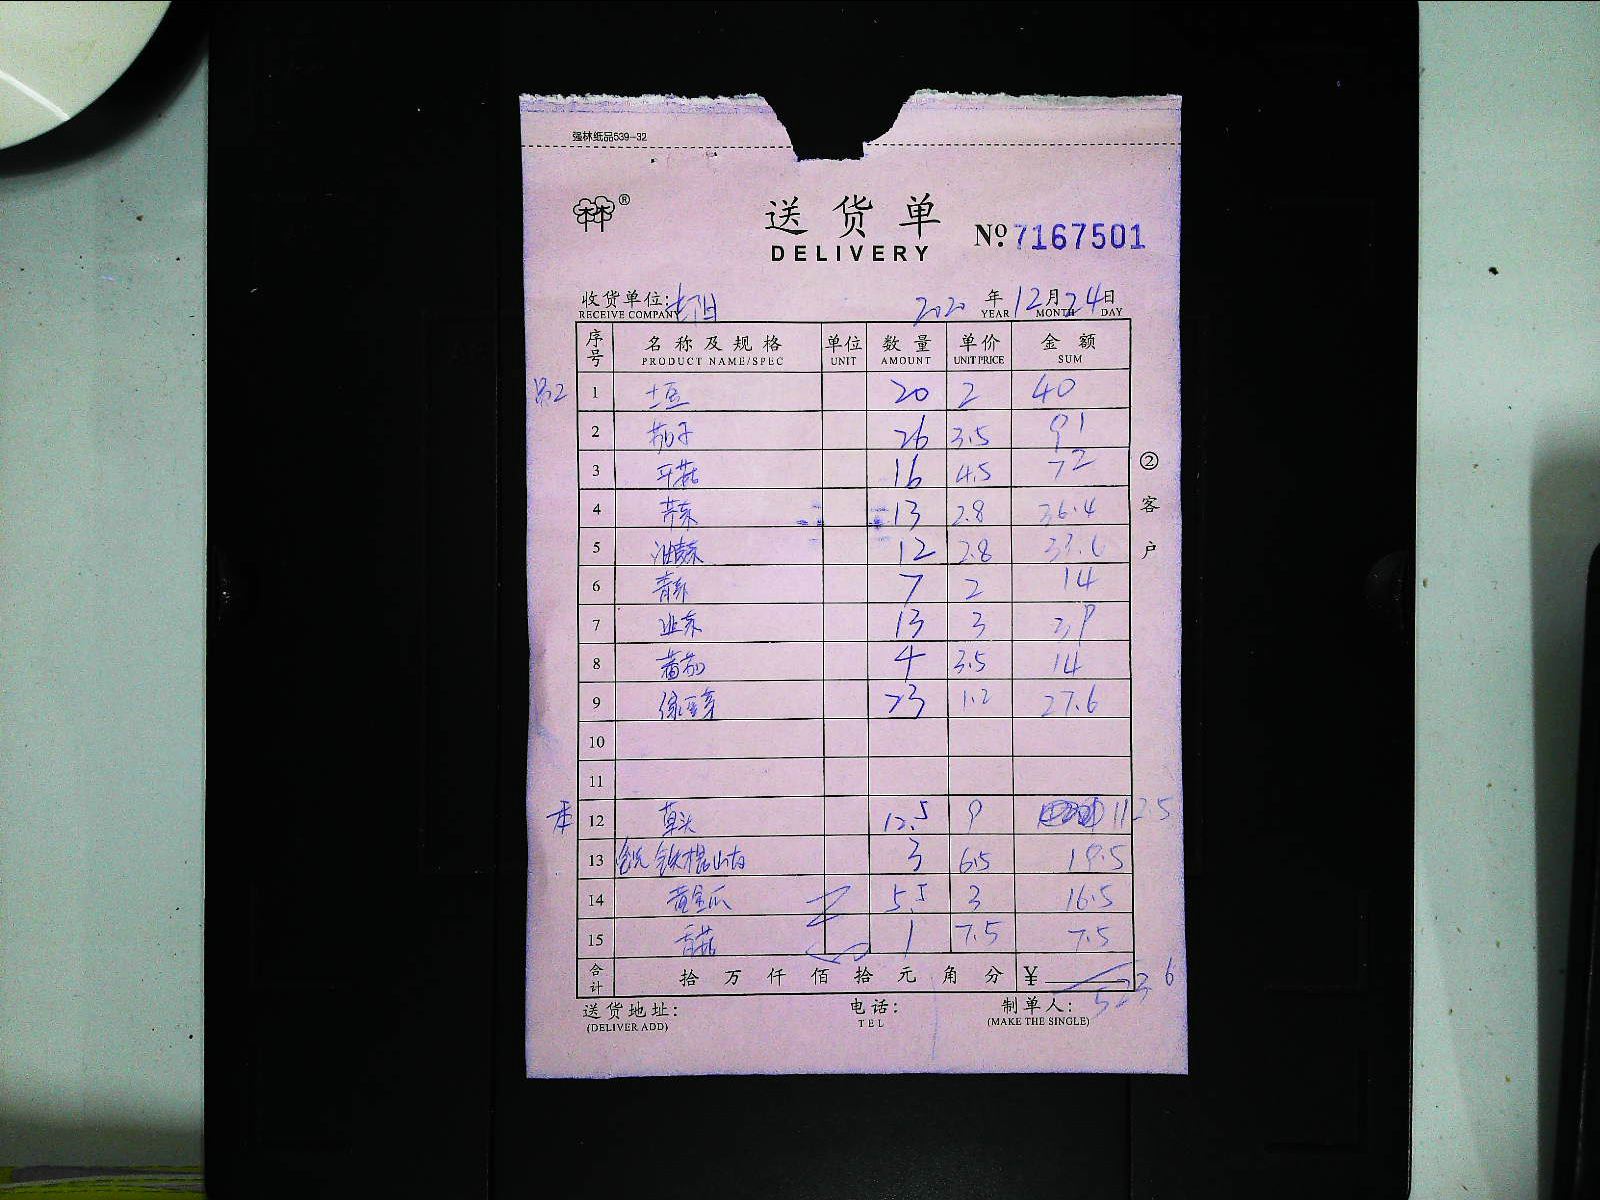 强林纸品539-32
林®
送货单
DELIVERY
No 7167501
收货单位:
RECEIVE COMPANY
2020 年 12 月 24 日
YEAR MONTH DAY
序号 名称及规格 单位 数量 单价 金额
PRODUCT NAME/SPEC UNIT AMOUNT UNIT PRICE SUM
1 土豆 20 2 40
2 茄子 26 3.5 91
3 平菇 16 4.5 72
4 芹菜 13 2.8 36.4
5 油麦菜 12 2.8 33.6
6 青菜 7 2 14
7 13 3 39
8 番茄 4 3.5 14
9 绿豆芽 23 1.2 27.6
10
11
12 草头 12.5 9 112.5
13 铁棍山药 3 6.5 19.5
14 黄金瓜 5.5 3 16.5
15 香菇 1 7.5 7.5
合计 拾 万 仟 佰 拾 元 角 分 ¥ 523.6
②客户
送货地址: 电话: 制单人:
(DELIVER ADD) TEL (MAKE THE SINGLE)